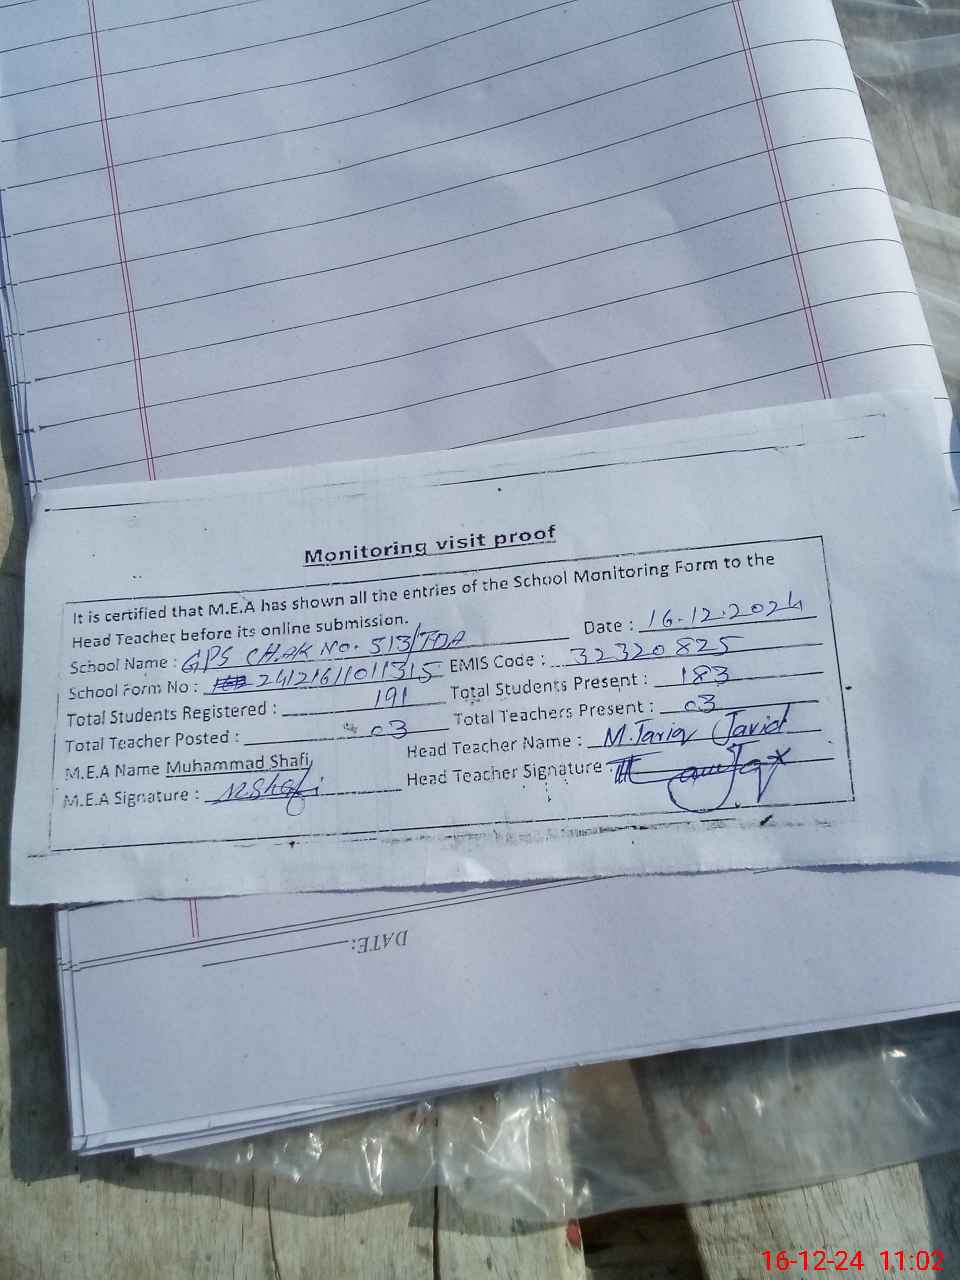 Monitoring visit proof
It is certified that M.E.A has shown all the entries of the School Monitoring Form to the
Head Teacher before its online submission.
Date : 16-12-2024
School Name : GPS CHAK NO. 513/TDA
School Form No : 24121611011315 EMIS Code : 32320825
Total Students Registered : 191 Total Students Present : 183
Total Teacher Posted : 03 Total Teachers Present : 03
M.E.A Name Muhammad Shafi Head Teacher Name : M. Tariq Javid
M.E.A Signature : M.Shafi Head Teacher Signature :
DATE:
16-12-24 11:02